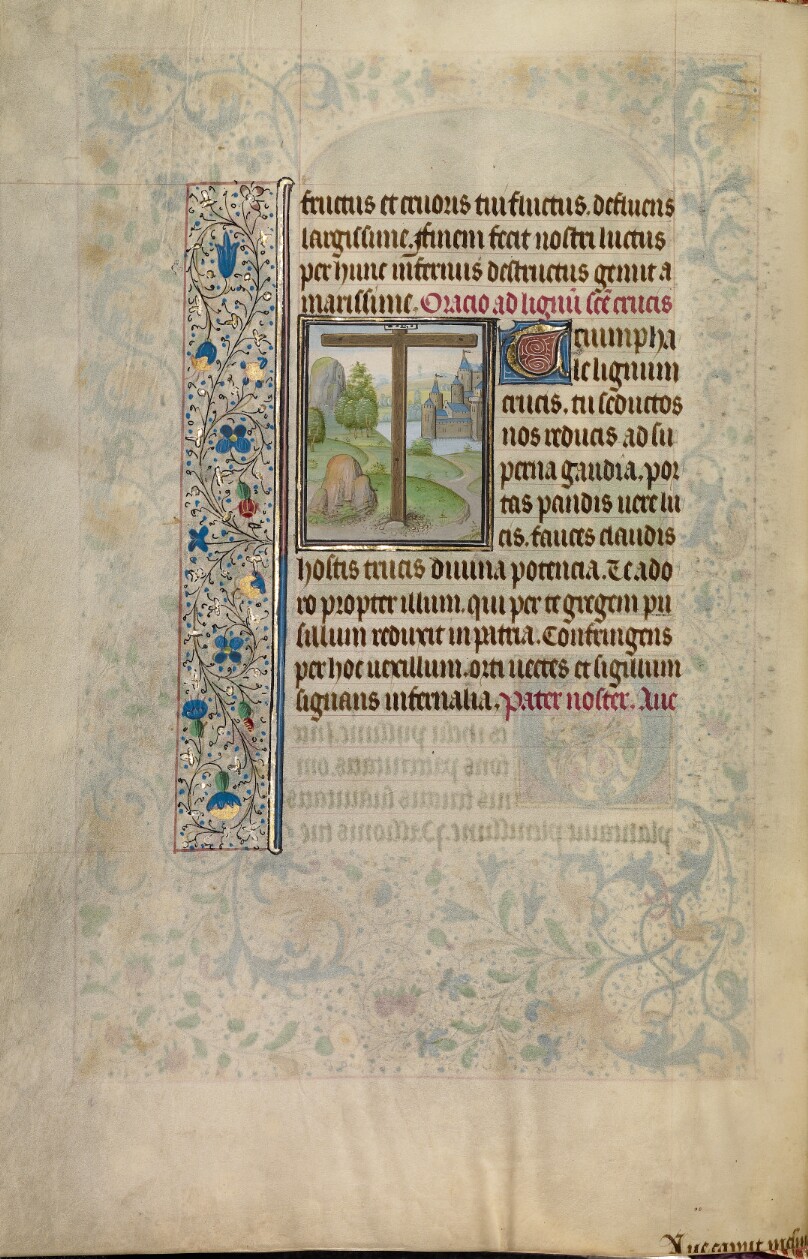 fructus et cruoris tui fluctus. defluens
largissime. finem fecit nostri luctus
per hunc īfernus destructus gemit a
marissime. Oracio ad lignū scē crucis
Triumpha
le lignum
crucis. tu seductos
nos reducis ad su
perna gaudia. por
tas pandis uere lu
cis. fauces claudis
hostis trucis diuina potencia. Te ado
ro propter illum. qui per te gregem pu
sillum reduxit in patria. Confringens
per hoc uexillum. orti uectes et sigillum
signans infernalia. Pater noster. Aue